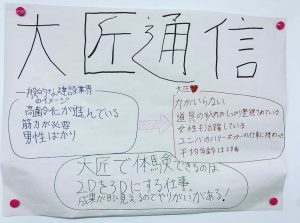 大匠通信
一般的な建設業界
のイメージ
高齢化が進んでいる
筋力が必要
男性ばかり
大匠♥
力がいらない
道具の手入れのしっかり整理されている
女性も活躍している
ユニバのハリーポッターの仕事に携わった
平均年齢は28歳
大匠で体験できるのは
2Dを3Dにする仕事。
成果が目に見えるのでやりがいがある!